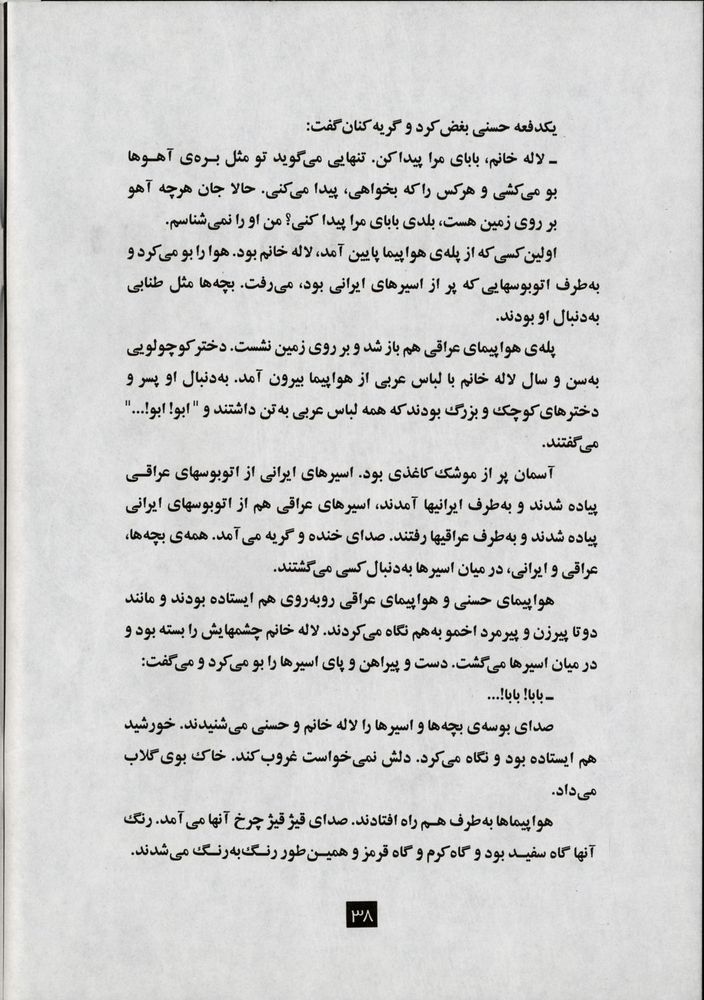 یکدفعه حسنی بغض کرد و گریه کنان گفت:
ـ لاله خانم، بابای مرا پیدا کن. تنهایی می‌گوید تو مثل بـره‌ی آهـوها
بو می‌کشی و هرکس را که بخواهی، پیدا می‌کنی. حالا جان هرچه آهو
بر روی زمین هست، بلدی بابای مرا پیدا کنی؟ من او را نمی‌شناسم.
اولین کسی که از پله‌ی هواپیما پایین آمد، لاله خانم بود. هوا را بو می‌کرد و
به‌طرف اتوبوسهایی که پر از اسیرهای ایرانی بود، می‌رفت. بچه‌ها مثل طنابی
به‌دنبال او بودند.
پله‌ی هواپیمای عراقی هم باز شد و بر روی زمین نشست. دختر کوچولویی
به‌سن و سال لاله خانم با لباس عربی از هواپیما بیرون آمد. به‌دنبال او پسر و
دخترهای کوچک و بزرگ بودند که همه لباس عربی به تن داشتند و "ابو! ابو!..."
می‌گفتند.
آسمان پر از موشک کاغذی بود. اسیرهای ایرانی از اتوبوسهای عراقـی
پیاده شدند و به‌طرف ایرانیها آمدند، اسیرهای عراقی هم از اتوبوسهای ایرانی
پیاده شدند و به‌طرف عراقیها رفتند. صدای خنده و گریه می‌آمد. همه‌ی بچه‌ها،
عراقی و ایرانی، در میان اسیرها به‌دنبال کسی می‌گشتند.
هواپیمای حسنی و هواپیمای عراقی روبه‌روی هم ایستاده بودند و مانند
دوتا پیرزن و پیرمرد اخمو به‌هم نگاه می‌کردند. لاله خانم چشمهایش را بسته بود و
در میان اسیرها می‌گشت. دست و پیراهن و پای اسیرها را بو می‌کرد و می‌گفت:
ـ بابا! بابا!...
صدای بوسه‌ی بچه‌ها و اسیرها را لاله خانم و حسنی می‌شنیدند. خورشید
هم ایستاده بود و نگاه می‌کرد. دلش نمی‌خواست غروب کند. خاک بوی گلاب
می‌داد.
هواپیماها به‌طرف هـم راه افتادند. صدای قیژ قیژ چرخ آنها می‌آمد. رنگ
آنها گاه سفیـد بود و گاه کرم و گاه قرمز و همیـن‌طور رنـگ‌به‌رنـگ می‌شدند.
۳۸